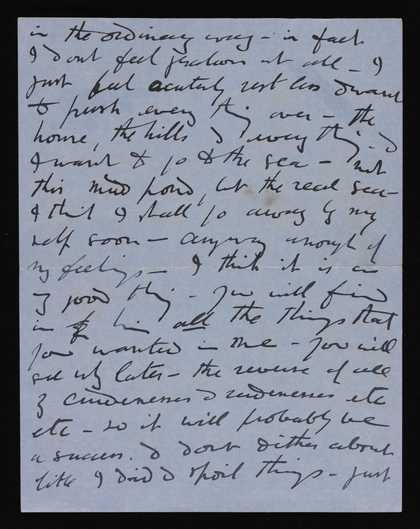 in the ordinary way – in fact
I dont feel jealous at all – I
just feel acutely restless & want
to push every thing over – the
house, the hills & every thing – &
I want to go to the sea – not
this mud pond, but the real sea –
I think I shall go away by my
self soon – anyway enough of
my feelings – I think it is a
good thing – You will find
in him all the things that
you wanted in me – you will
see why later – the reverse of all
etc
etc – so it will probably be
a success. & dont dither about
like I did & spoil things – just